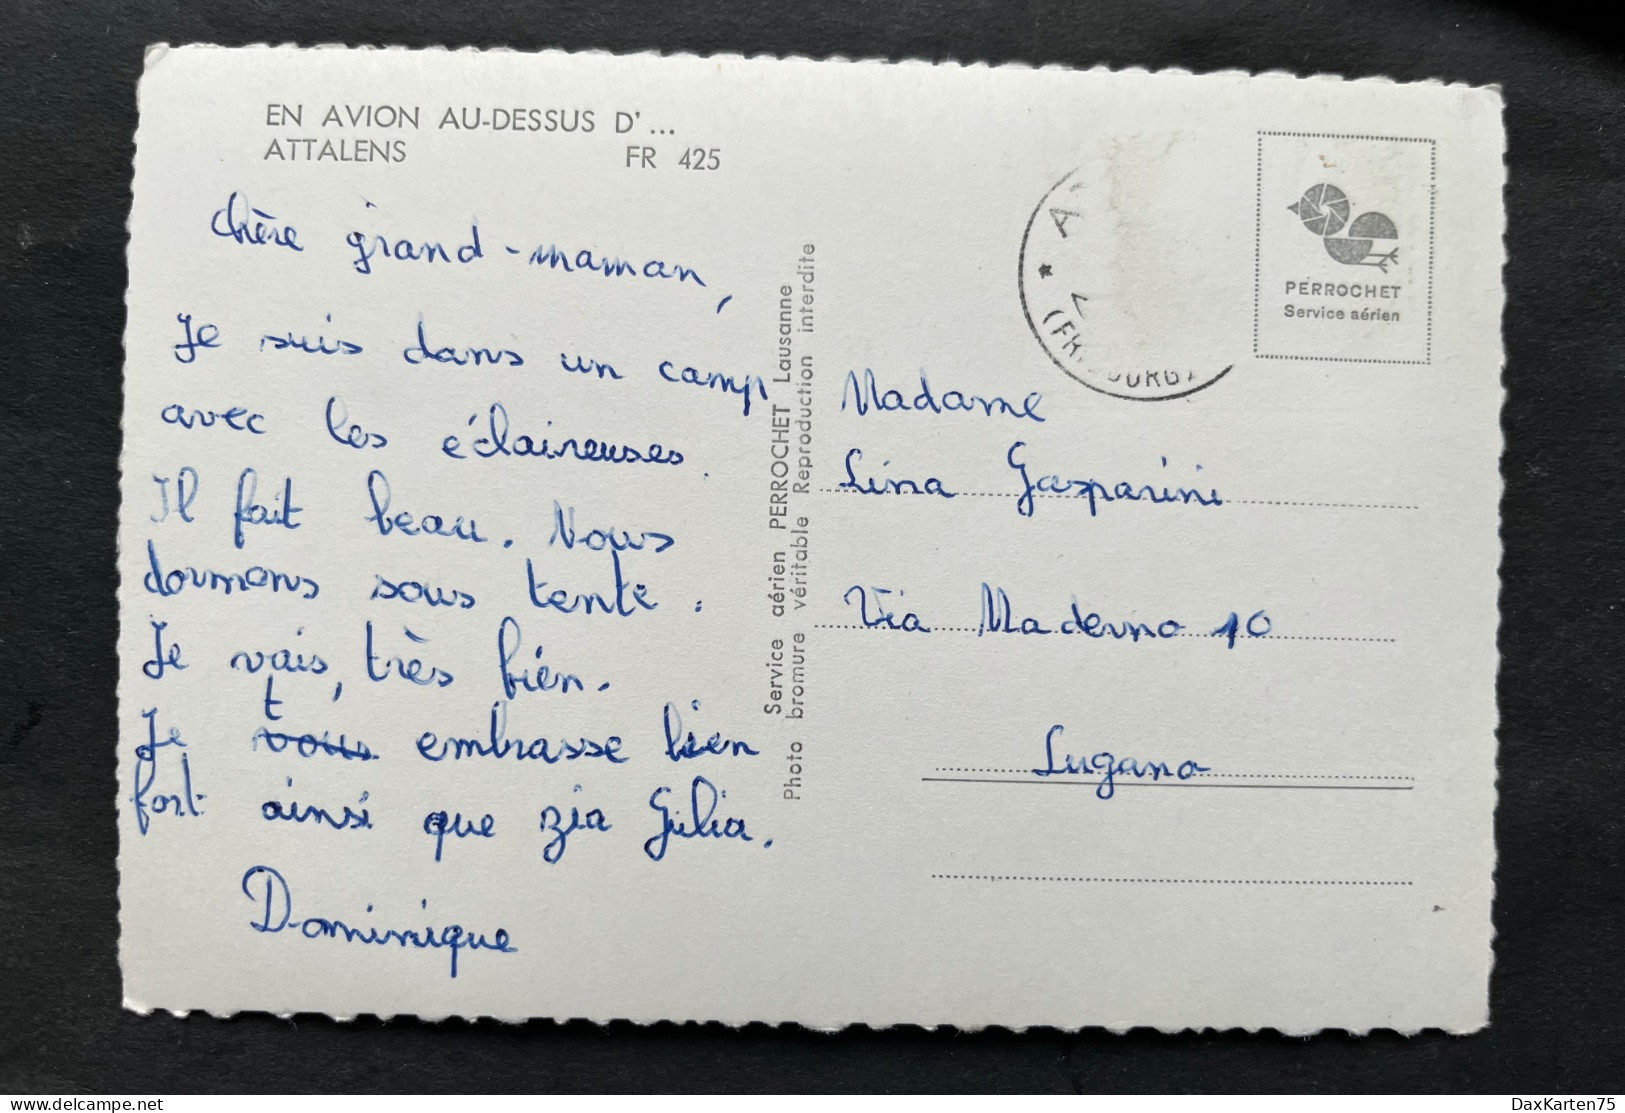 EN AVION AU-DESSUS D'...
ATTALENS FR 425
Chère grand-maman,
Je suis dans un camp
avec les éclaireuses.
Il fait beau. Nous
dormons sous tente.
Je vais, très bien.
t
Je vous embrasse bien
fort ainsi que zia Giulia.
Dominique
Service aérien PERROCHET Lausanne
Photo bromure véritable Reproduction interdite
PERROCHET
Service aérien
Madame
Lina Gasparini
Via Maderno 10
Lugano
DaxKarten75
delcampe.net